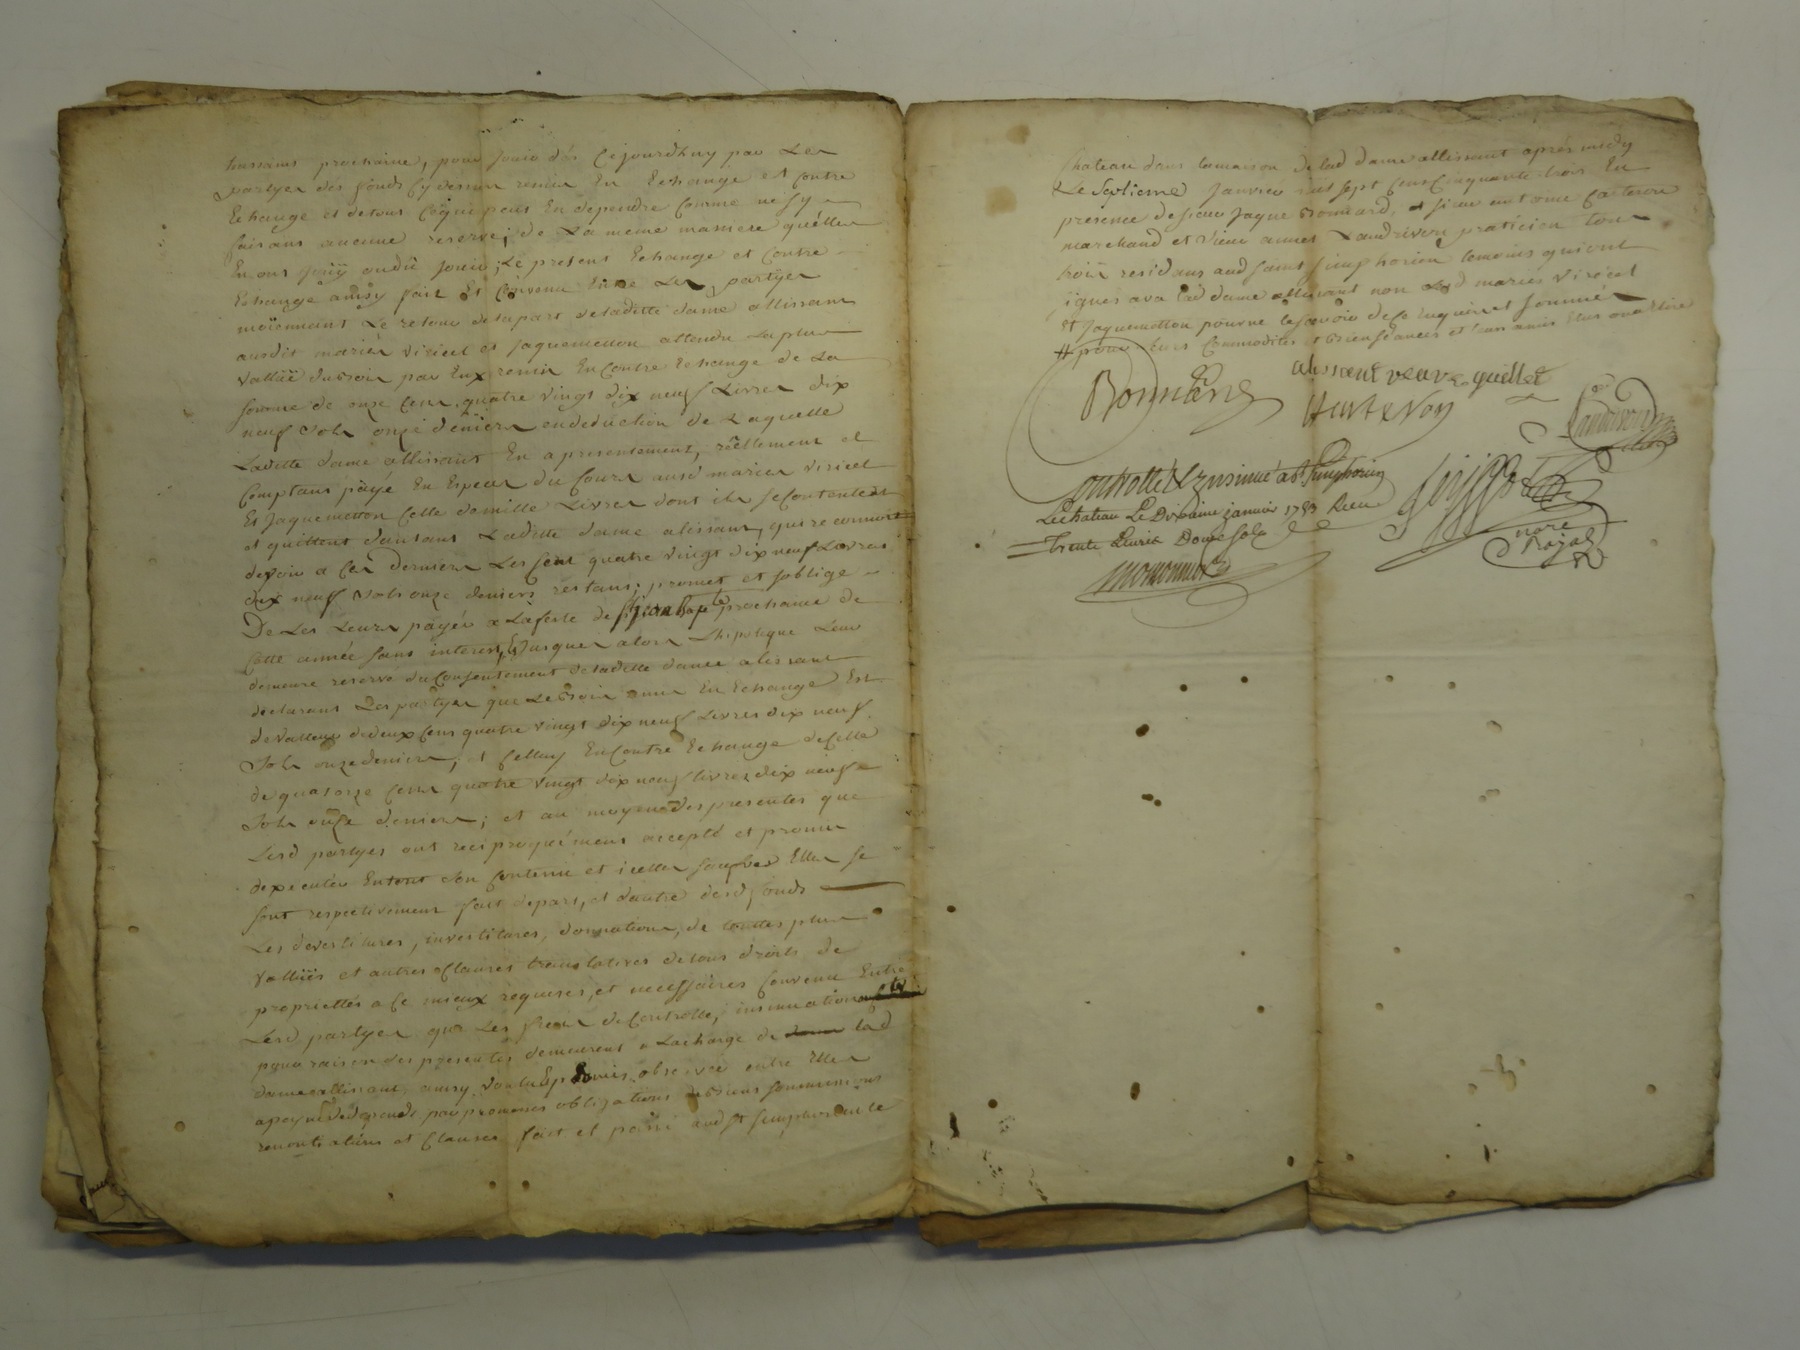 prochaine, pour jouir dés cejourdhuy par Les
partyes des fonds cydessus remis En Echange et contre
Echange et detous cequi peut En dependre comme nesy
faisans aucune reserve; de La meme maniere quélles
En ont jouÿ ou dû jouir; Le present Echange et contre
Echange ainsy fait Et convenu Entre Les partÿes
moïennant Le retour delapart deladitte dame allissant
ausdit mariés viricel et jaquemetton attendu Laplus
vallüe dubroir par Eux remis En contre Echange de La
somme de onze cens quatre vingt dix neuf Livres dix
neuf sols onze deniers endeduction de Laquelle
Laditte dame allissant En apresentement, réellement et
comptant payé En Especes du Cours ausd mariés viricel
Et jaquemetton celle demille Livres dont ils secontentent
et quittent dautant Laditte dame alissant, qui reconnoit
devoir a ces derniers Les cent quatre vingt dix neuf Livres
dix neuf sols onze deniers restans; promet et soblige
De Les Leurs payér a Lafeste de st jean bapte prochaine de
cette année sans interest, Et jusques alors Lhipoteque Leur
demeure reservé duconsentement deladitte dame alissant
declarant Les partyes que Lebroir remis En Echange Est
devalleur dedeux cens quatre vingt dix neuf Livres dix neuf
sols onze deniers, et celluy En contre Echange decelle
de quatorze cens quatre vingt dix neuf livres dix neuf
sols onze deniers; et au moyen des presentes que
Lesd partyes ont reciproquement accepté et promis
dexecuter Entout son contenu et icelles Elles se
sont respectivement fait depart, et dautre desd fonds
Les devestitures, investitures, donnations, de touttes plus
vallües et autres Clauses translatives detous droits de
propriettés a ce mieux requises, et necessaires convenu Entre
Lesd partyes que Les frais de Controlle, insinuation
pour raison des presentes demeurent a Lacharge de lad
dame allissant, ainsy voulu Et promis observer entre Elles
a peyne dedepends par promesses obligations soumissions
renontiations et clauses fait et passé aud st simphorien le
chateau dans lamaison de lad dame allissant aprés midy
Le Septieme Janvier mil sept cens cinquante trois En
presence de sieur jaque Bonnard, et sieur
marchand et sieur annet Landrivon praticien tous
trois residans aud saint simphorien temoins quiont
signés avec lad dame allissant non Lesd mariés viricel
Et jaquemetton pour ne lesçavoir dece Enquis et sommés
# pour leurs Commodités et bienséances et
alissant veuve guillet
Bonnard
Landrivon
Controllé Et insinué a St Simphorien
Lechateau Le Dixieme janvier 1753 Receu
trente Livres Douze sols
nore
Royal